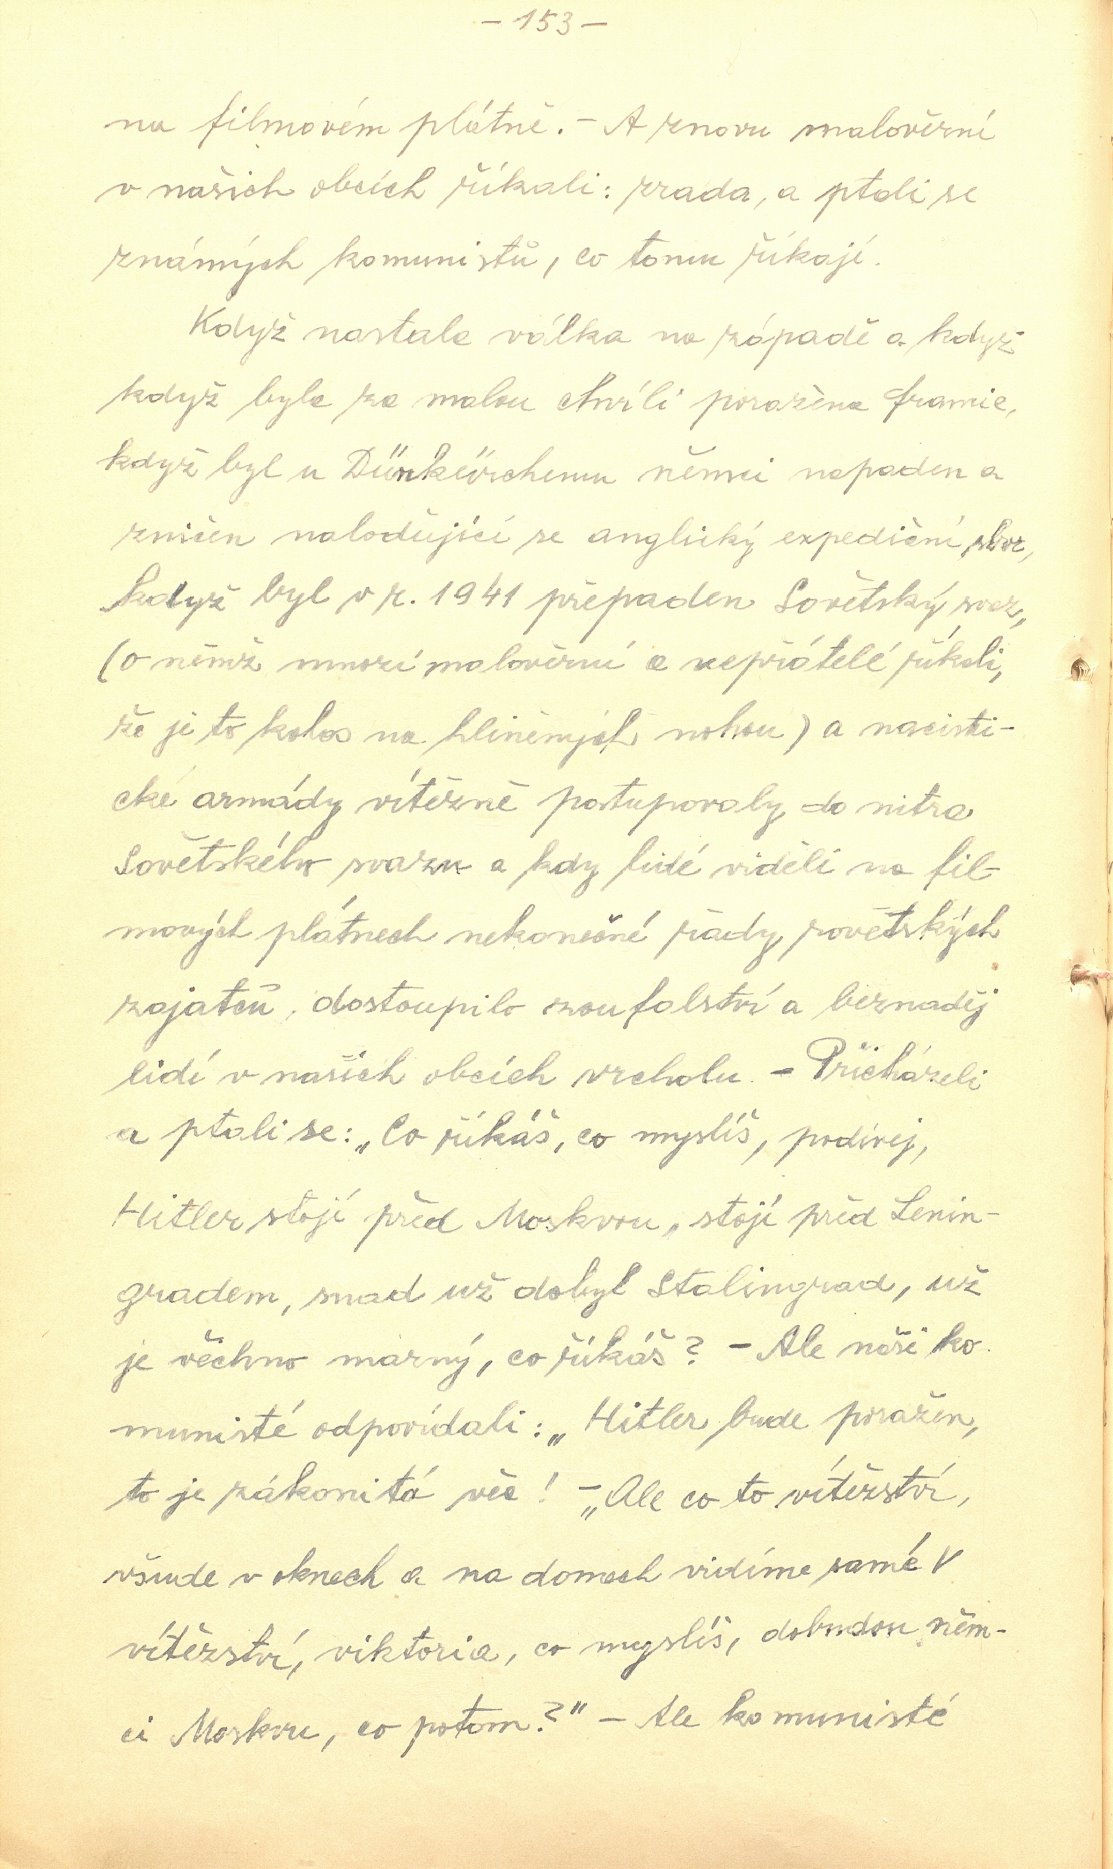 - 153 -
na filmovém plátně. - A znovu malověrní
v našich obcích říkali: zrada, a ptali se
známých komunistů, co tomu říkají.
Když nastala válka na západě a když
když byla za malou chvíli poražena francie,
když byl u Dünkürchenu němci napaden a
zničen naloďující se anglický expediční sbor,
když byl v r. 1941 přepaden Sovětský svaz,
(o němž mnozí malověrní a nepřátelé říkali,
že je to kolos na hliněných nohou) a nacisti-
cké armády vítězně postupovaly do nitra
Sovětského svazu a kdy lidé viděli na fil-
mových plátnech nekonečné řady sovětských
zajatců, dostoupilo zoufalství a beznaděj
lidí v našich obcích vrcholu. - Přicházeli
a ptali se: „Co říkáš, co myslíš, podívej,
Hitler stojí před Moskvou, stojí před Lenin-
gradem, snad už dobyl Stalingrad, už
je všchno marný, co říkáš? - Ale naši ko-
munisté odpovídali: „Hitler bude poražen,
to je zákonitá věc! - „Ale co to vítězství,
všude v oknech a na domech vidíme samé V
vítězství, viktoria, co myslíš, dobudou něm-
ci Moskvu, co potom?" - Ale komunisté